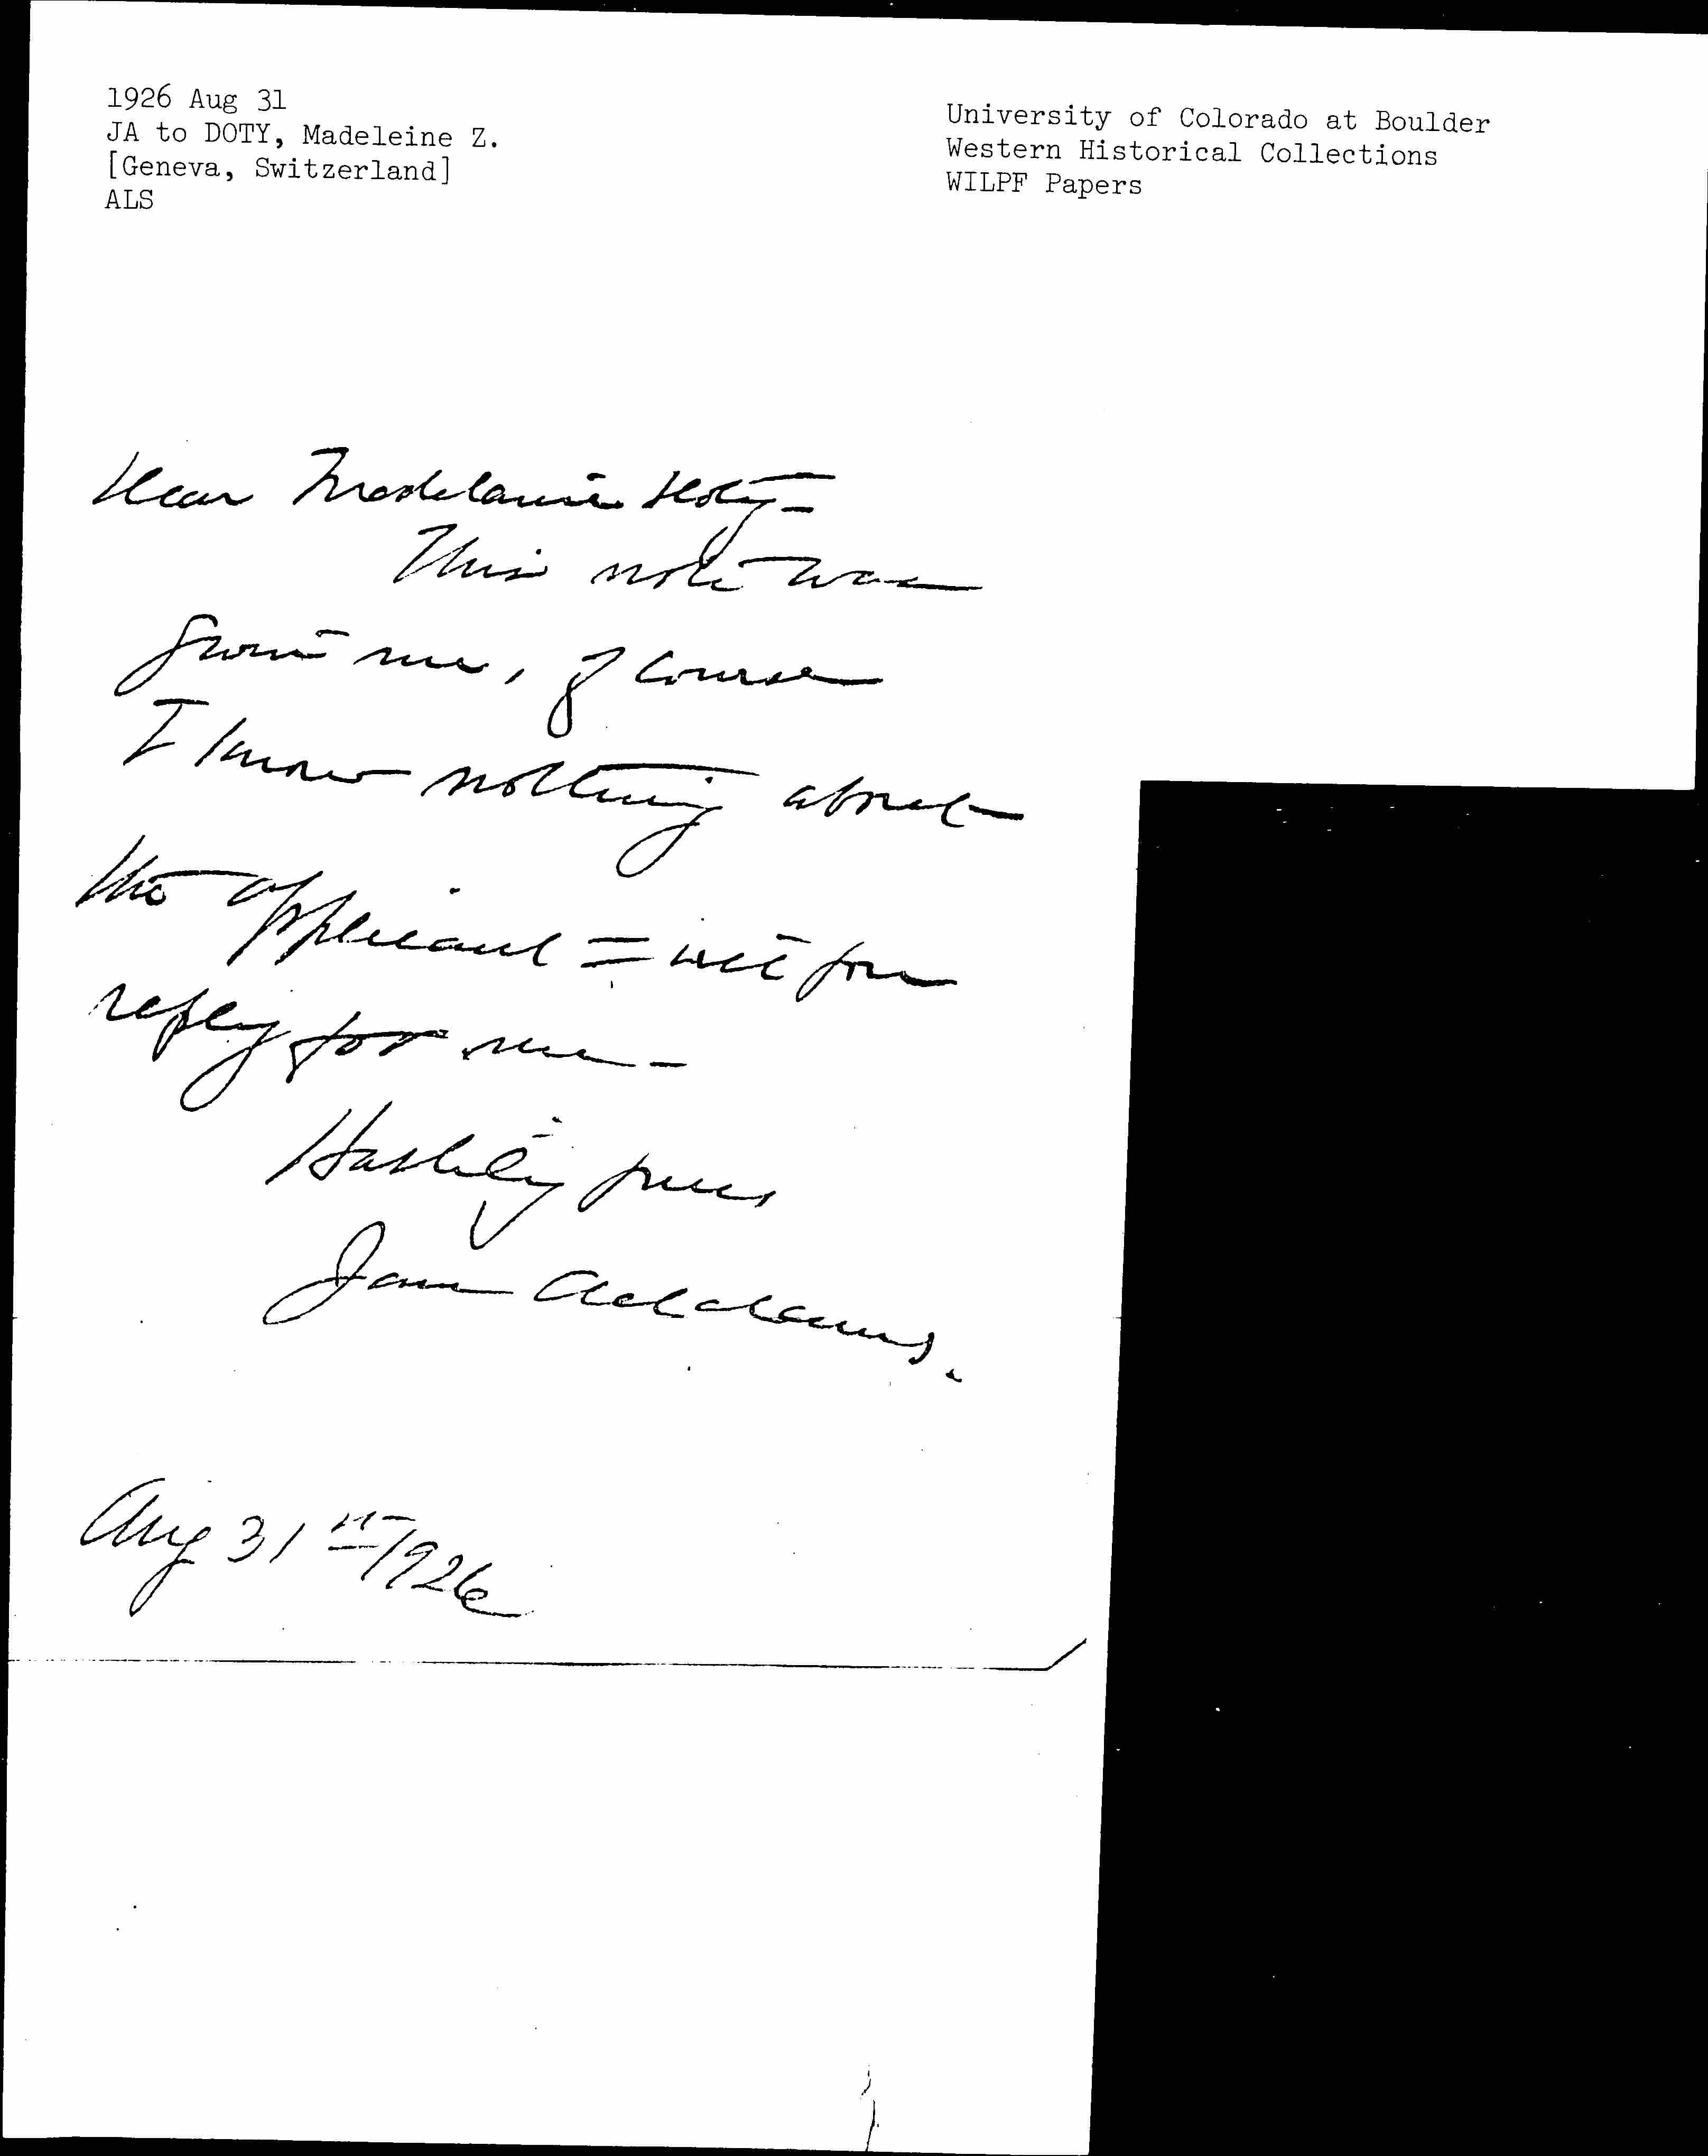 1926 Aug 31
JA to DOTY, Madeleine Z.
[Geneva, Switzerland]
ALS
University of Colorado at Boulder
Western Historical Collections
WILPF Papers
Dear Madelaine Doty -
This note was
me, of course
I know nothing about
the applicant = will you
reply for me -
Hastily yours
Jane Addams.
Aug 31st 1926